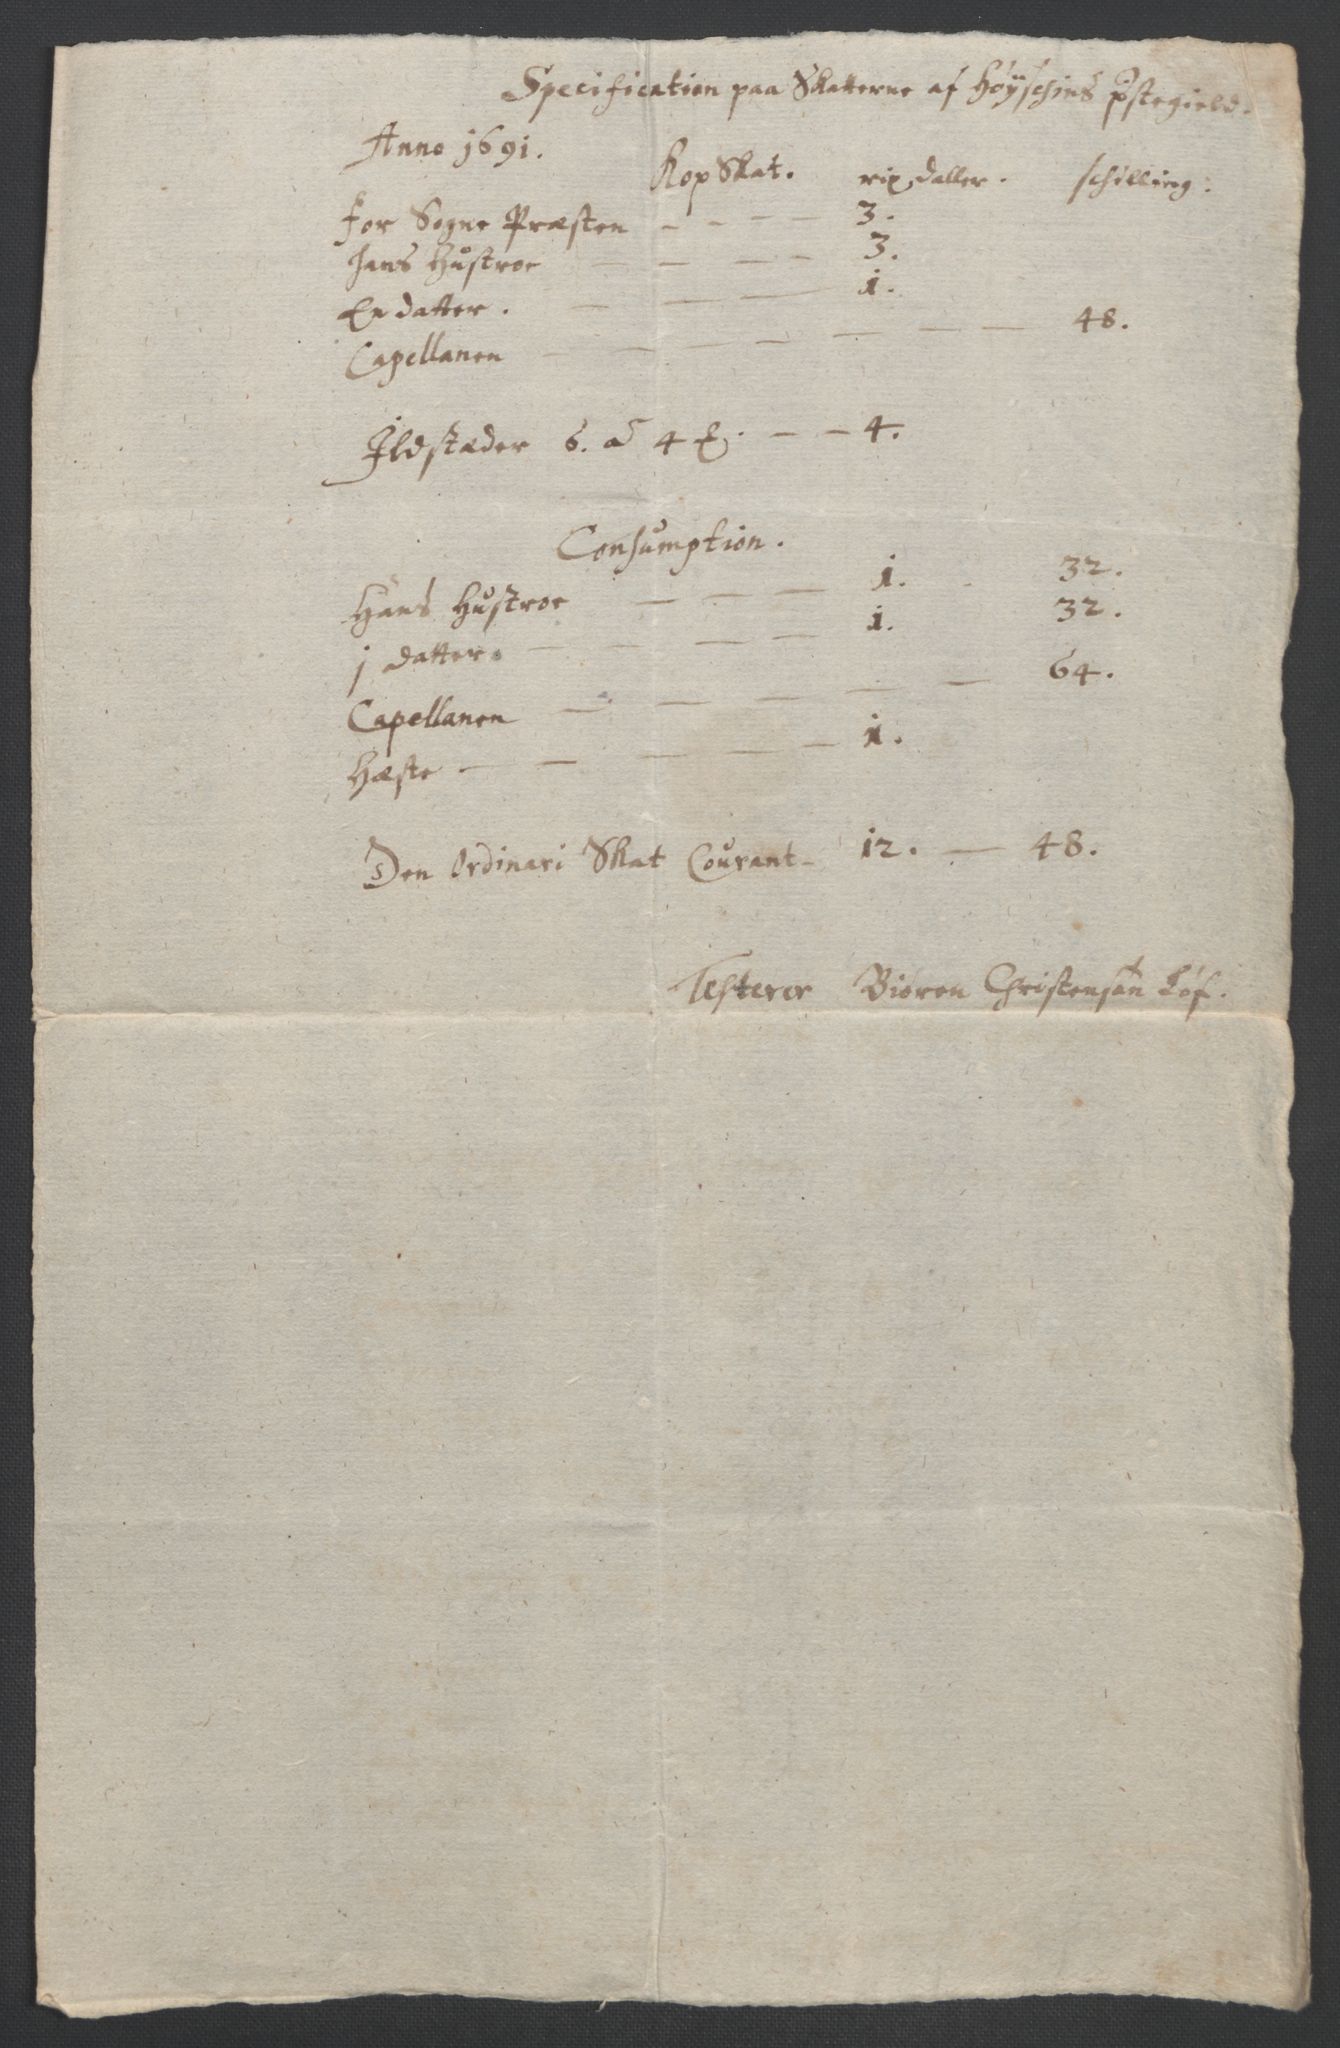 Specification paa Skatterne af Höÿschins Pstegield.
Anno 1691.
KopSkat. rix daller. schilling.
for Sogne Præsten - - - - 3.
hans Hustroe - - - - 3.
En datter. - - - 1.
Capellanen - - - - - - - 48.
Ildstæder 6. a 4 - - 4.
Consumption.
Hans Hustroe - - - 1. 32.
j datter. - - - - 1. 32.
Capellanen - - - - - 64.
Hæste - - - - - 1.
Den Ordinari Skat Courant - 12. - 48.
Testerer Biören Christensøn Löf.